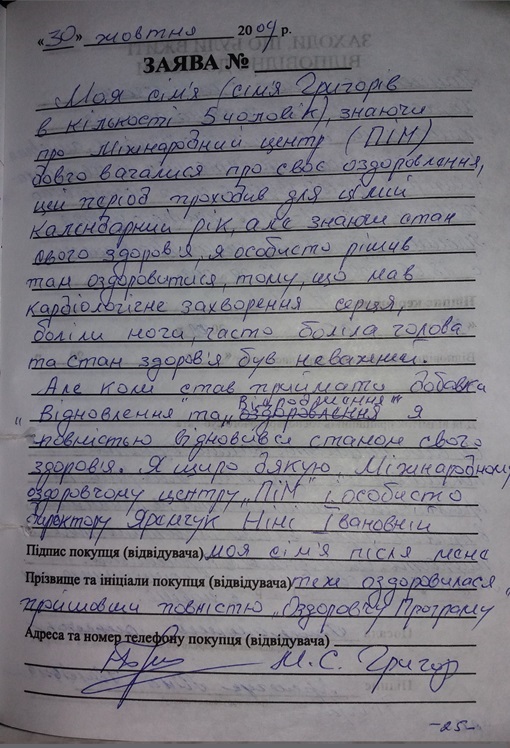 «30» жовтня 2009 р.
ЗАЯВА №
Моя сім'я (сім'я Григорів
в кількості 5 чоловік), знаючи
про Міжнародний центр (ПІМ)
довго вагалися про своє оздоровлення,
цей період проходив для цілий
календарний рік, але знаючи стан
свого здоров'я, я особисто рішив
там оздоровитися, тому, що мав
кардіологічне захворення серця,
боліли нога, часто боліла голова
та стан здоров'я був неважний.
Але коли став приймати добавка
Відродження""
„Відновлення" та „оздоровлення я
повністю відновився станом свого
здоров'я. Я щиро дякую Міжнародному
оздоровчому центру „ПІМ" і особисто
директору Яремчук Ніні Івановній
Підпис покупця (відвідувача) моя сім'я після мене
Прізвище та ініціали покупця (відвідувача) теж оздоровилася
пройшовши повністю „Оздоровчу Програму"
Адреса та номер телефону покупця (відвідувача)
М. С. Григор
-25-